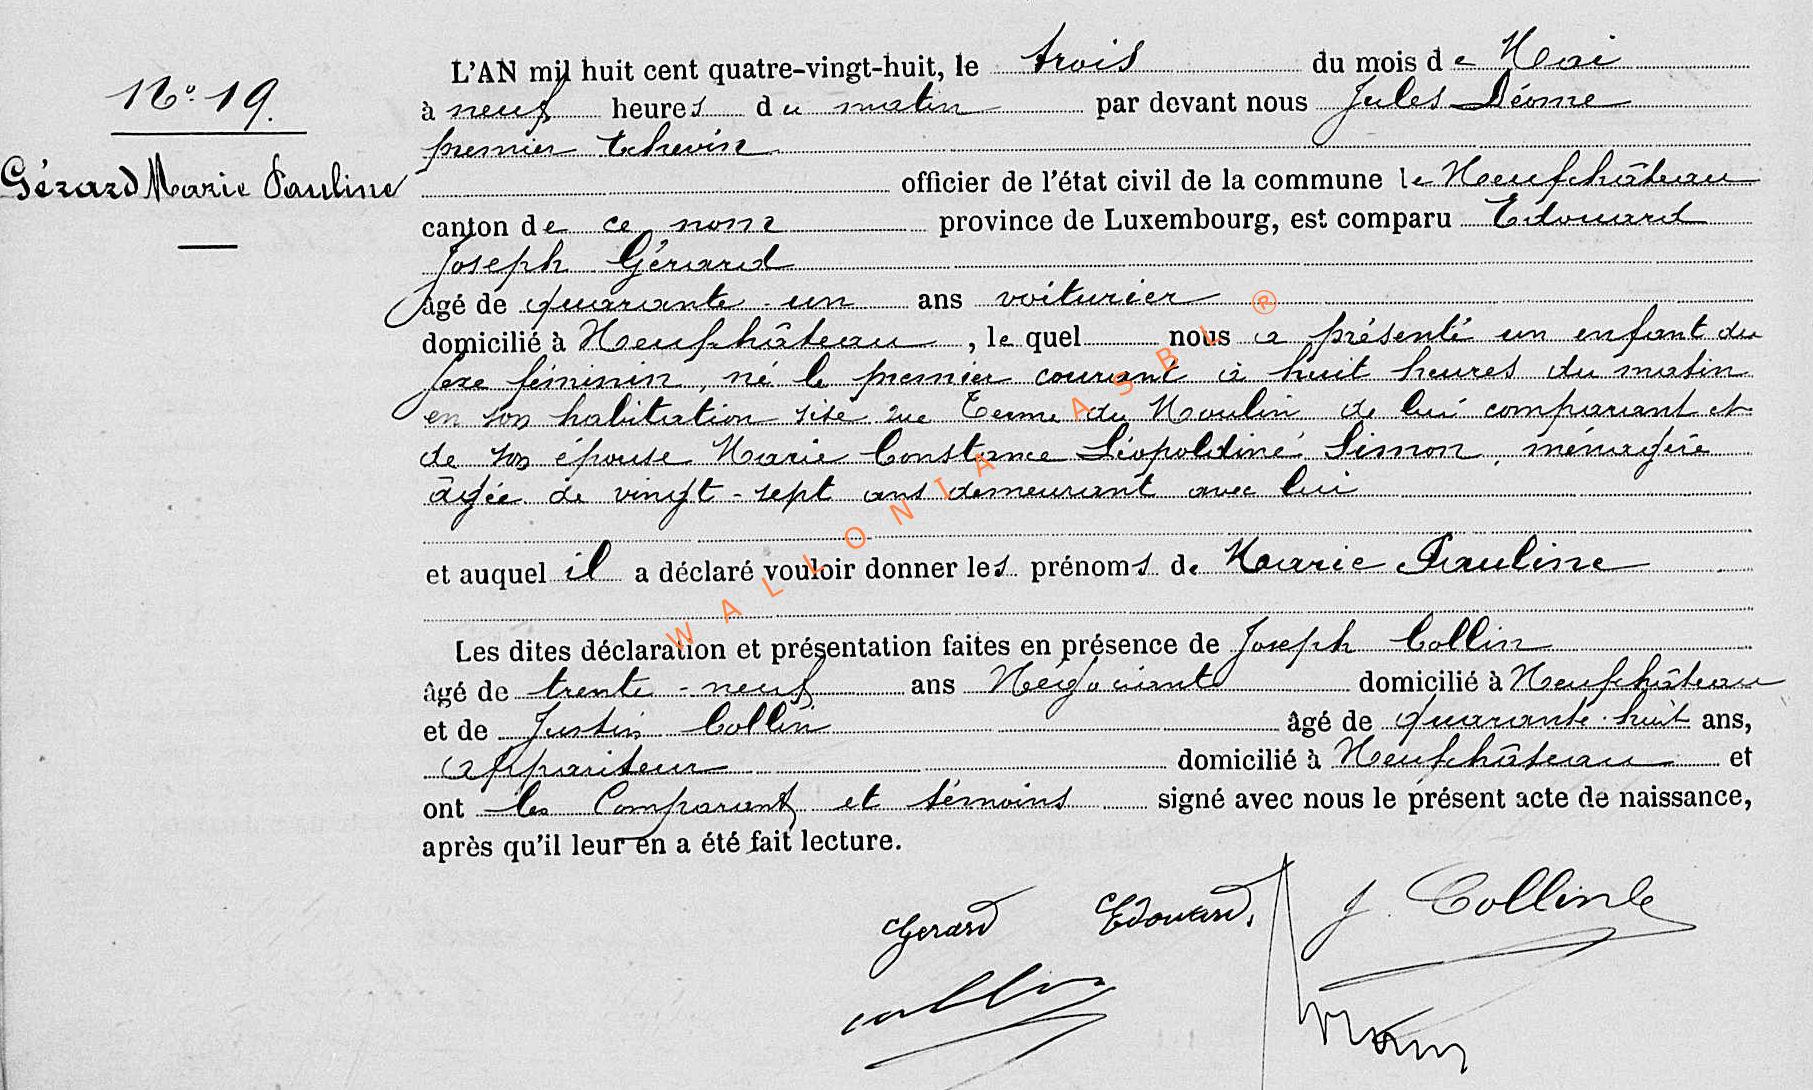 N° 19.
Gérard Marie Pauline
L'AN mil huit cent quatre-vingt-huit, le trois du mois de Mai
à neuf heures du matin par devant nous Jules Déome
premier Echevin
officier de l'état civil de la commune de Neufchâteau
canton de ce nom province de Luxembourg, est comparu Edouard
Joseph Gérard
âgé de quarante-un ans voiturier
domicilié à Neufchâteau, lequel nous a présenté un enfant du
sexe féminin, né le premier courant à huit heures du matin
en son habitation sise rue Terme du Moulin de lui comparant et
de son épouse Marie Constance Léopoldine Simon, ménagère
âgée de vingt-sept ans demeurant avec lui
et auquel il a déclaré vouloir donner les prénoms de Marie Pauline
Les dites déclaration et présentation faites en présence de Joseph Collin
âgé de trente-neuf ans Négociant domicilié à Neufchâteau
et de Justin Collin âgé de quarante-huit ans,
appariteur domicilié à Neufchâteau et
ont les Comparant et témoins signé avec nous le présent acte de naissance,
après qu'il leur en a été fait lecture.
Gerard Edouard. J. Collin
Collin
WALLONIA ASBL ®